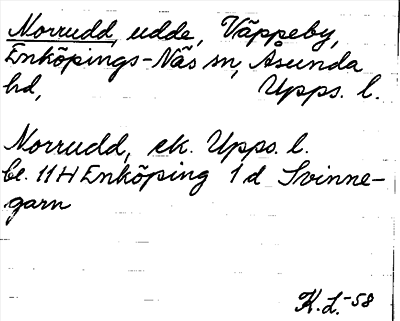 Norrudd, udde, Väppeby,
Enköpings-Näs sn, Åsunda
hd, Upps. l.
Norrudd, ek. Upps. l.
bl. 11 H Enköping 1 d Svinne-
garn
K.L.-58